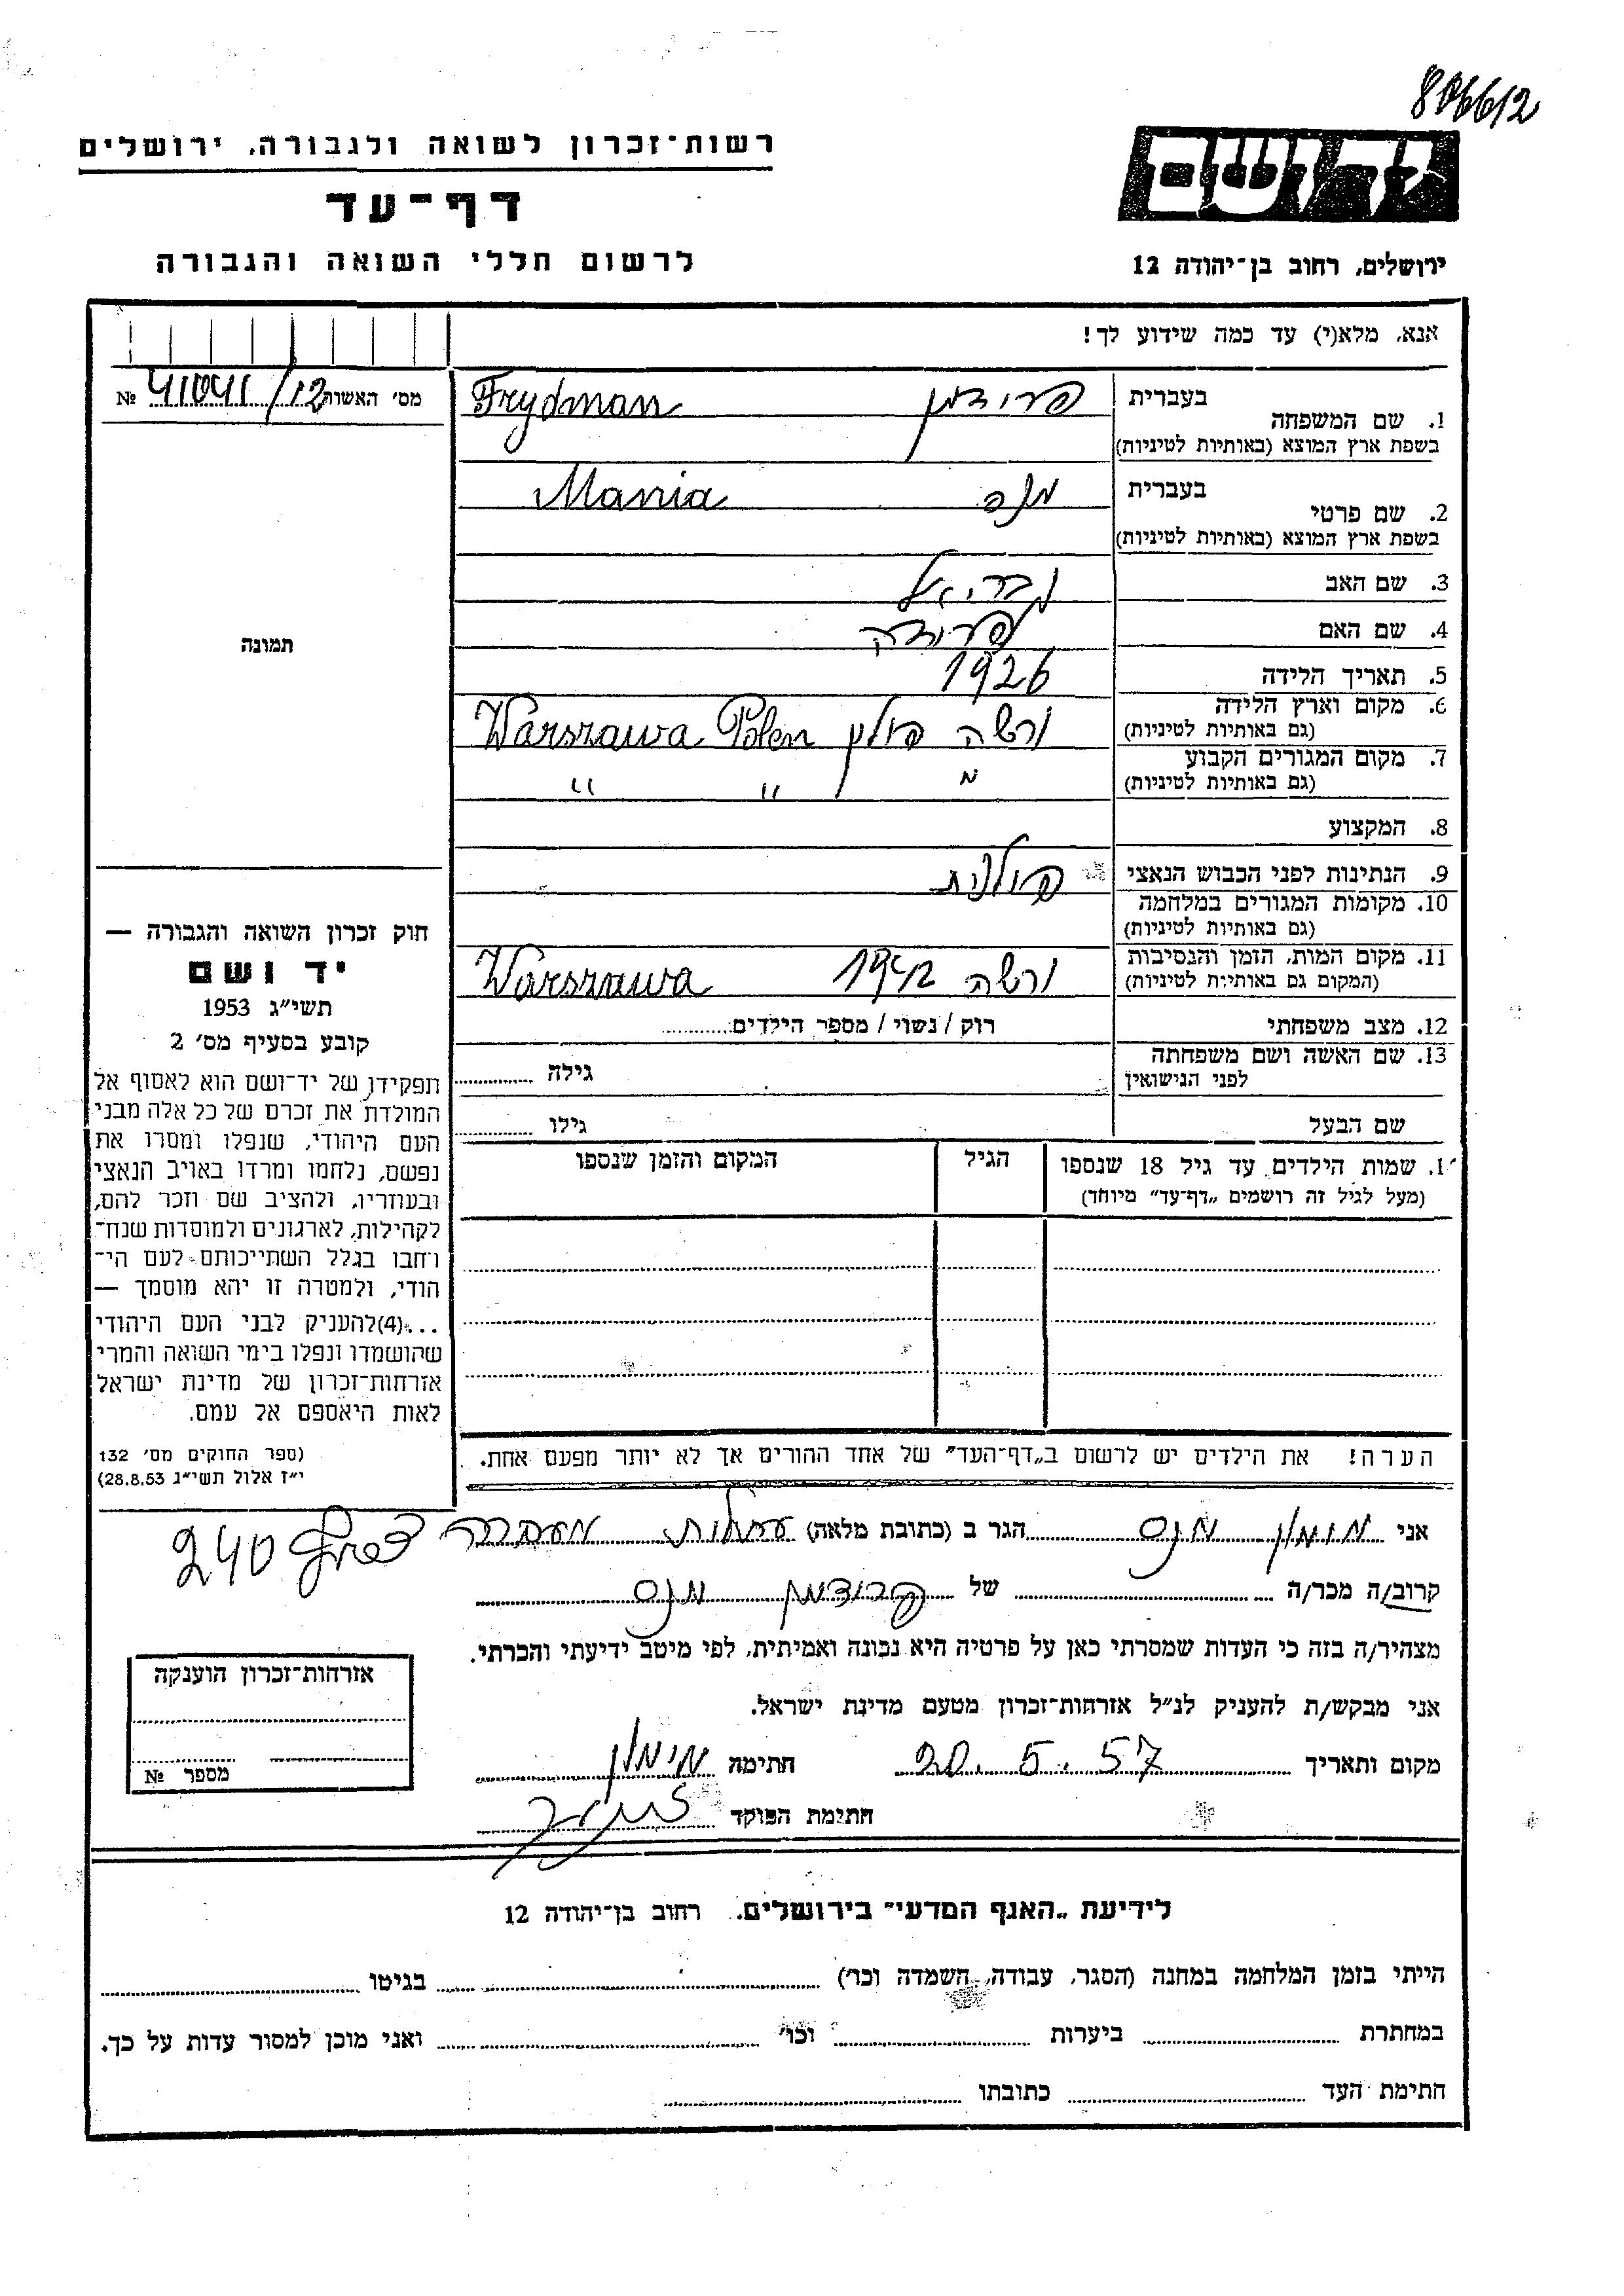 806612
רשות־זכרון לשואה ולגבורה, ירושלים
יד ושם
דף־עד
לרשום חללי השואה והגבורה
ירושלים, רחוב בן־יהודה 12
אנא, מלא(י) עד כמה שידוע לך!
מס׳ האשות 41041/12 №
בעברית
1. שם המשפחה
בשפת ארץ המוצא (באותיות לטיניות)
פרידמן Frydman
בעברית
2. שם פרטי
בשפת ארץ המוצא (באותיות לטיניות)
Mania
3. שם האב גבריאל
4. שם האם פרידה
5. תאריך הלידה 1926
6. מקום וארץ הלידה
(גם באותיות לטיניות)
ורשה פולין Warszawa Polen
7. מקום המגורים הקבוע
(גם באותיות לטיניות)
" " "
8. המקצוע
9. הנתינות לפני הכבוש הנאצי פולנית
10. מקומות המגורים במלחמה
(גם באותיות לטיניות)
11. מקום המות, הזמן והנסיבות
(המקום גם באותיות לטיניות)
ורשה 1942 Warszawa
12. מצב משפחתי רוק / נשוי / מספר הילדים
13. שם האשה ושם משפחתה
לפני הנישואין
גילה
שם הבעל גילו
1. שמות הילדים עד גיל 18 שנספו
(מעל לגיל זה רושמים „דף־עד״ מיוחד)
הגיל
המקום והזמן שנספו
הערה! את הילדים יש לרשום ב„דף־העד״ של אחד ההורים אך לא יותר מפעם אחת.
תמונה
חוק זכרון השואה והגבורה —
יד ושם
תשי״ג 1953
קובע בסעיף מס׳ 2
תפקידו של יד־ושם הוא לאסוף אל
המולדת את זכרם של כל אלה מבני
העם היהודי, שנפלו ומסרו את
נפשם, נלחמו ומרדו באויב הנאצי
ובעוזריו, ולהציב שם וזכר להם,
לקהילות, לארגונים ולמוסדות שנח־
רחבו בגלל השתייכותם לעם הי־
הודי, ולמטרה זו יהא מוסמך —
...(4)להעניק לבני העם היהודי
שהושמדו ונפלו בימי השואה והמרי
אזרחות־זכרון של מדינת ישראל
לאות היאספם אל עמם.
(ספר החוקים מס׳ 132
י״ז אלול תשי״ג 28.8.53)
אני הגר ב (כתובת מלאה) עתלית מעברה צריף 240
קרוב/ה מכר/ה של
מצהיר/ה בזה כי העדות שמסרתי כאן על פרטיה היא נכונה ואמיתית, לפי מיטב ידיעתי והכרתי.
אני מבקש/ת להעניק לנ״ל אזרחות־זכרון מטעם מדינת ישראל.
מקום ותאריך 20.5.57 חתימה
חתימת הפוקד
אזרחות־זכרון הוענקה
מספר №
לידיעת „האגף המדעי״ בירושלים, רחוב בן־יהודה 12
הייתי בזמן המלחמה במחנה (הסגר, עבודה, השמדה וכו׳) בגיטו
במחתרת ביערות וכו׳ ואני מוכן למסור עדות על כך.
חתימת העד כתובתו